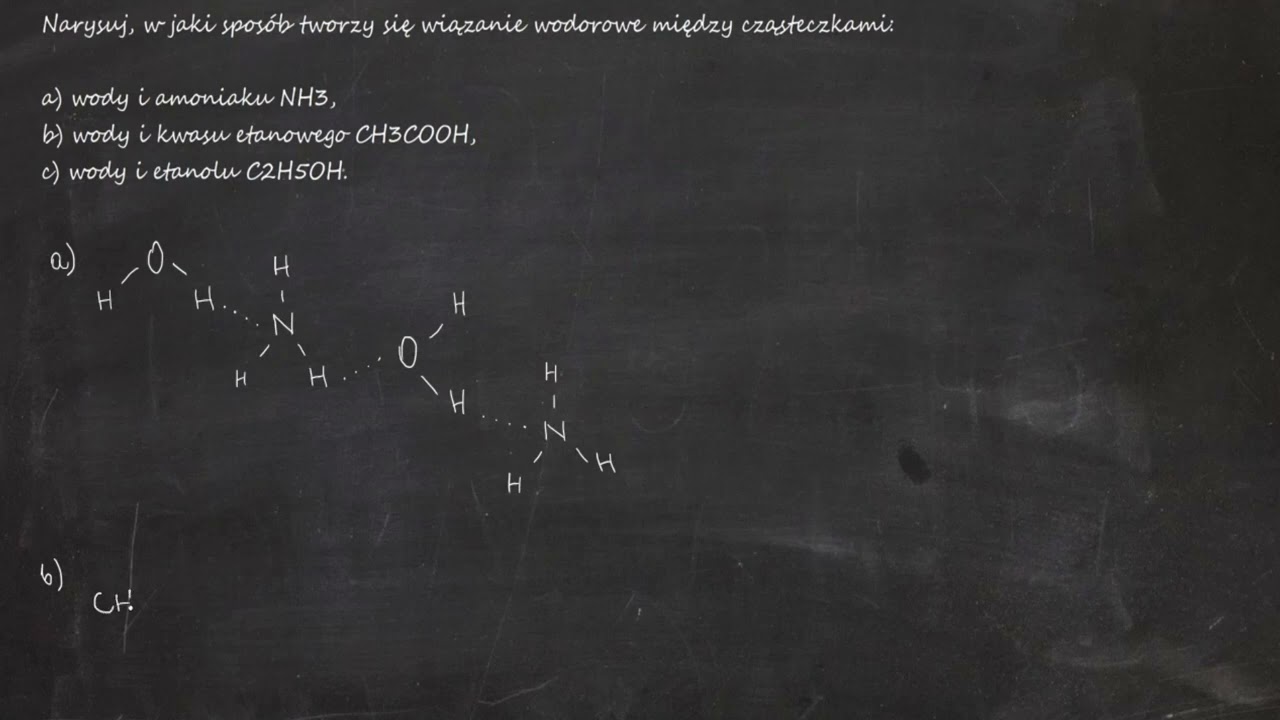 Narysuj, w jaki sposób tworzy się wiązanie wodorowe między cząsteczkami:
a) wody i amoniaku NH3,
b) wody i kwasu etanowego CH3COOH,
c) wody i etanolu C2H5OH.
a)
O H
H H H
N O
H H
H H
N
H H
b)
CH